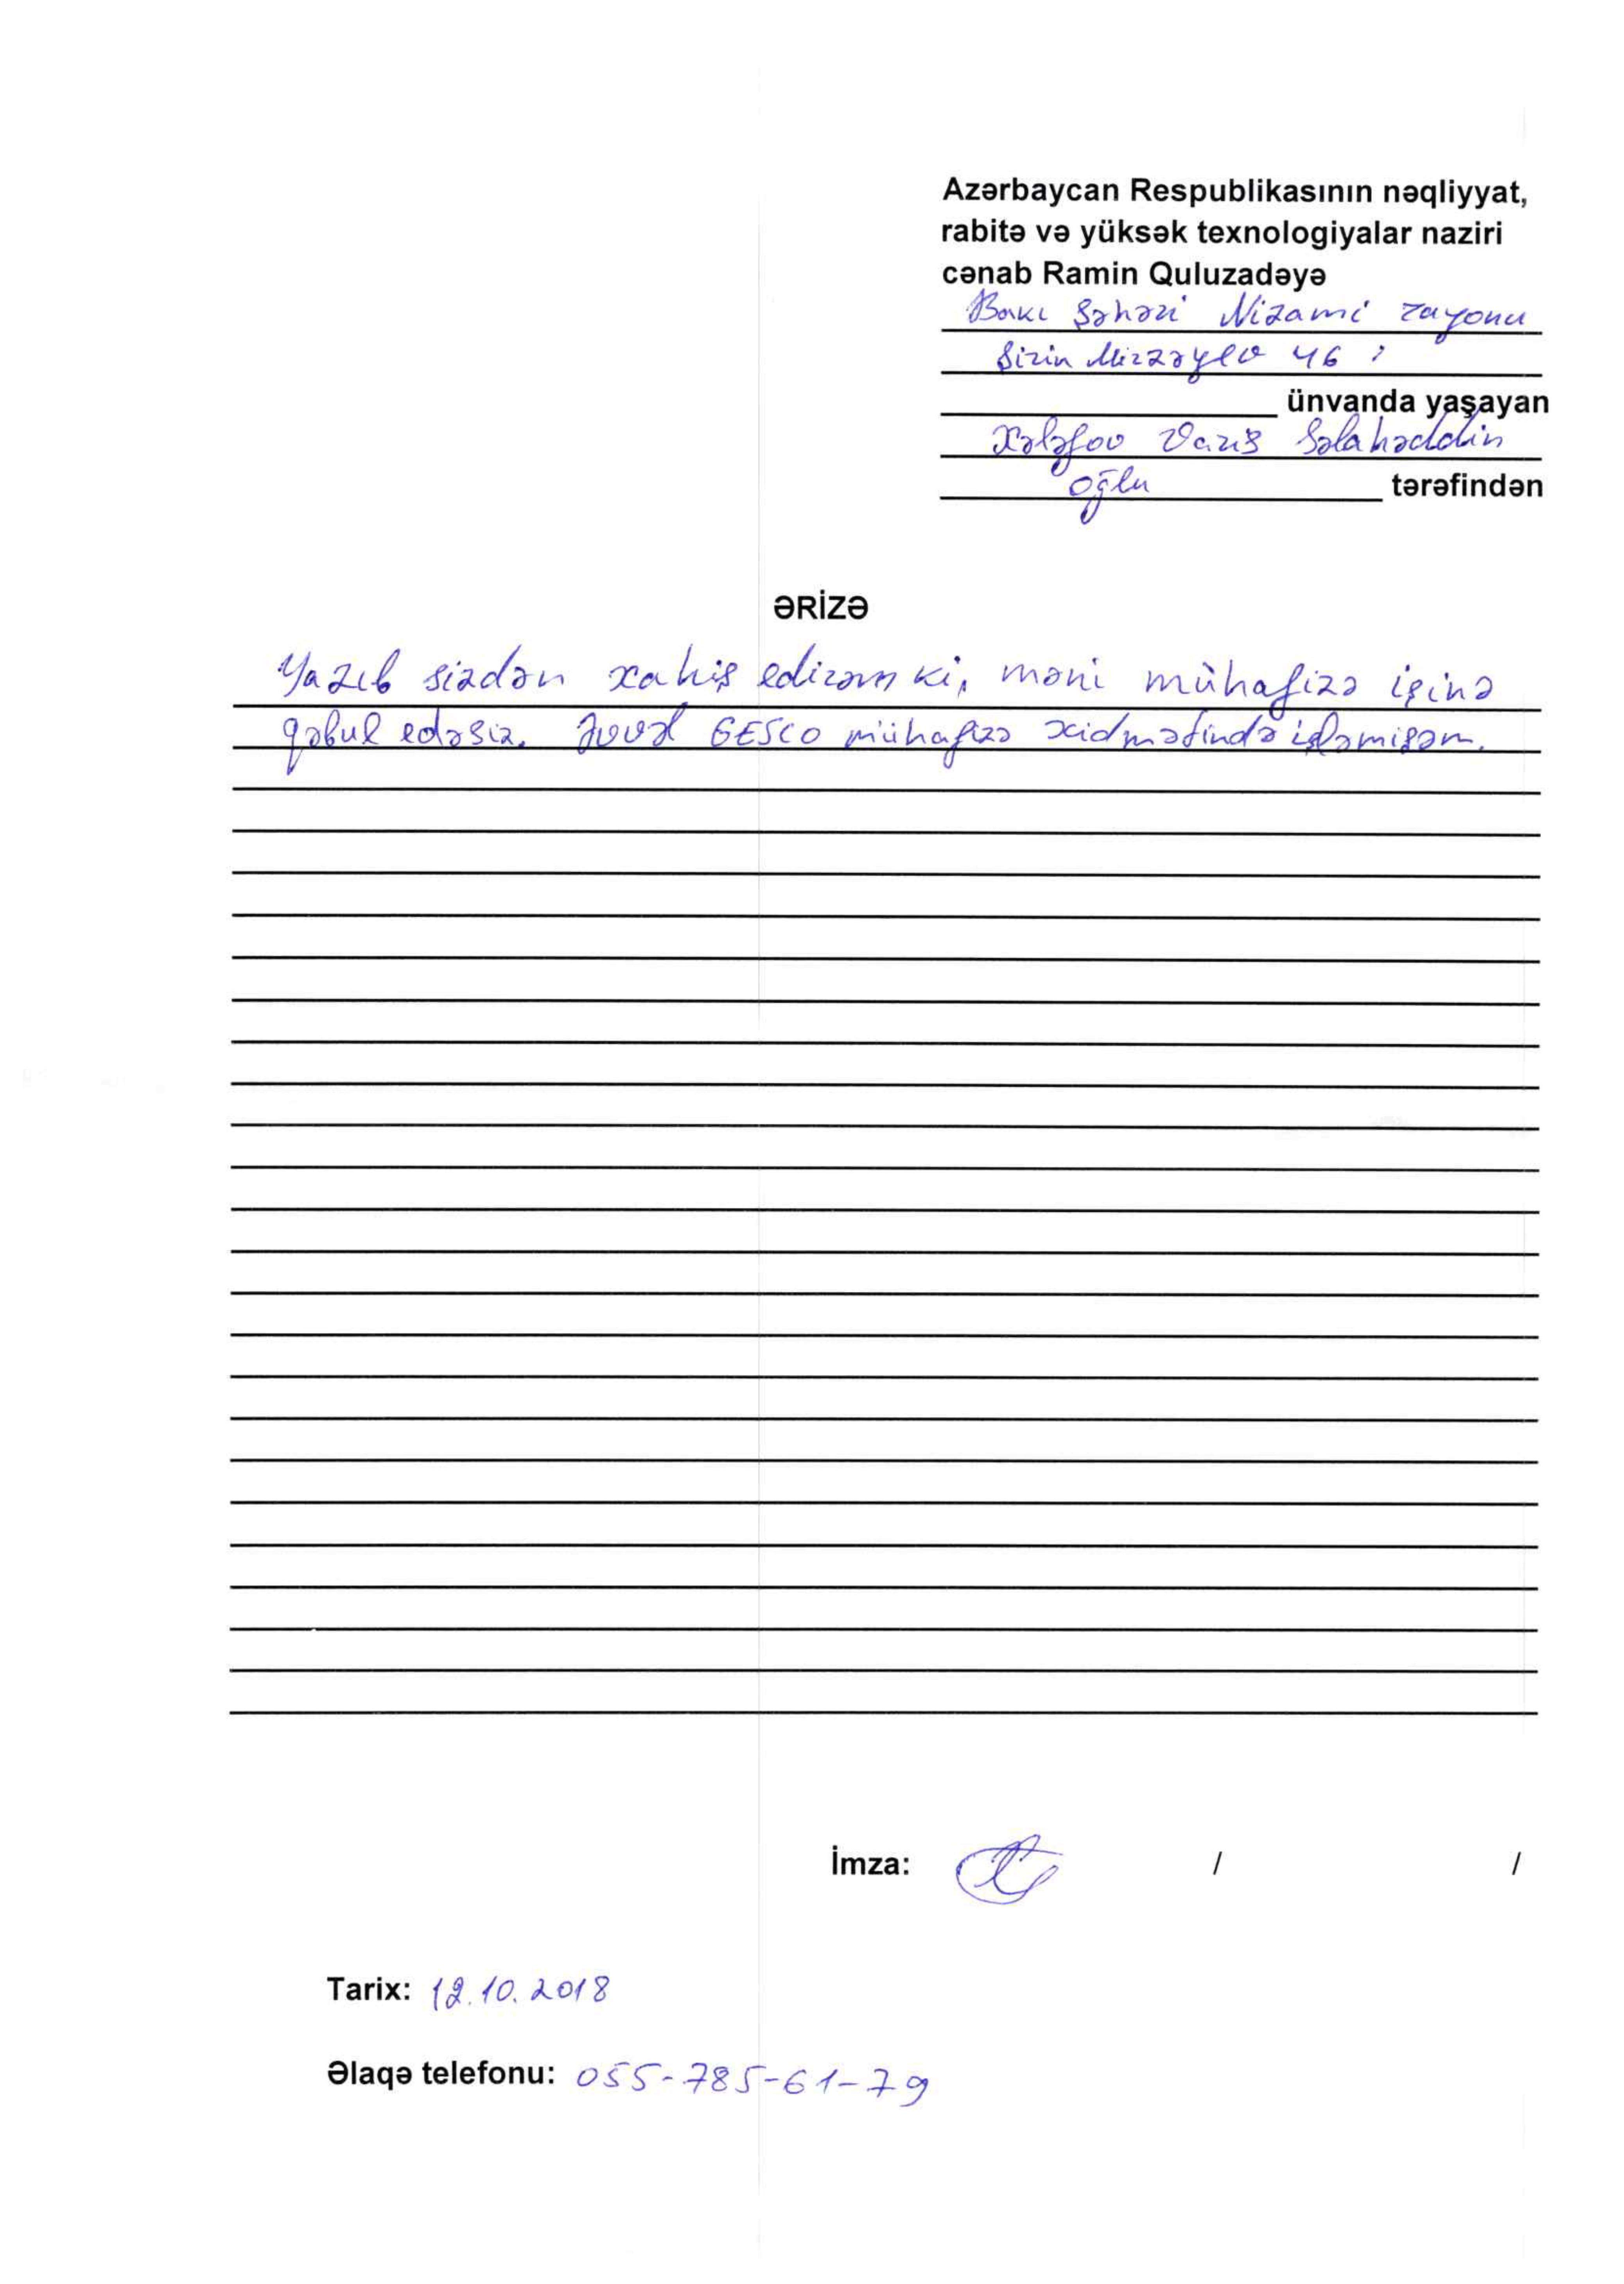 Azərbaycan Respublikasının nəqliyyat,
rabitə və yüksək texnologiyalar naziri
cənab Ramin Quluzadəyə
Bakı şəhəri Nizami rayonu
Şirin Mirzəyev 46
ünvanda yaşayan
Xələfov Varis Səlahəddin
oğlu tərəfindən
ƏRİZƏ
Yazıb sizdən xahiş edirəm ki, məni mühafizə işinə
qəbul edəsiz. GESCO mühafizə xidmətində işləmişəm.
İmza: / /
Tarix: 12.10.2018
Əlaqə telefonu: 055-785-61-79